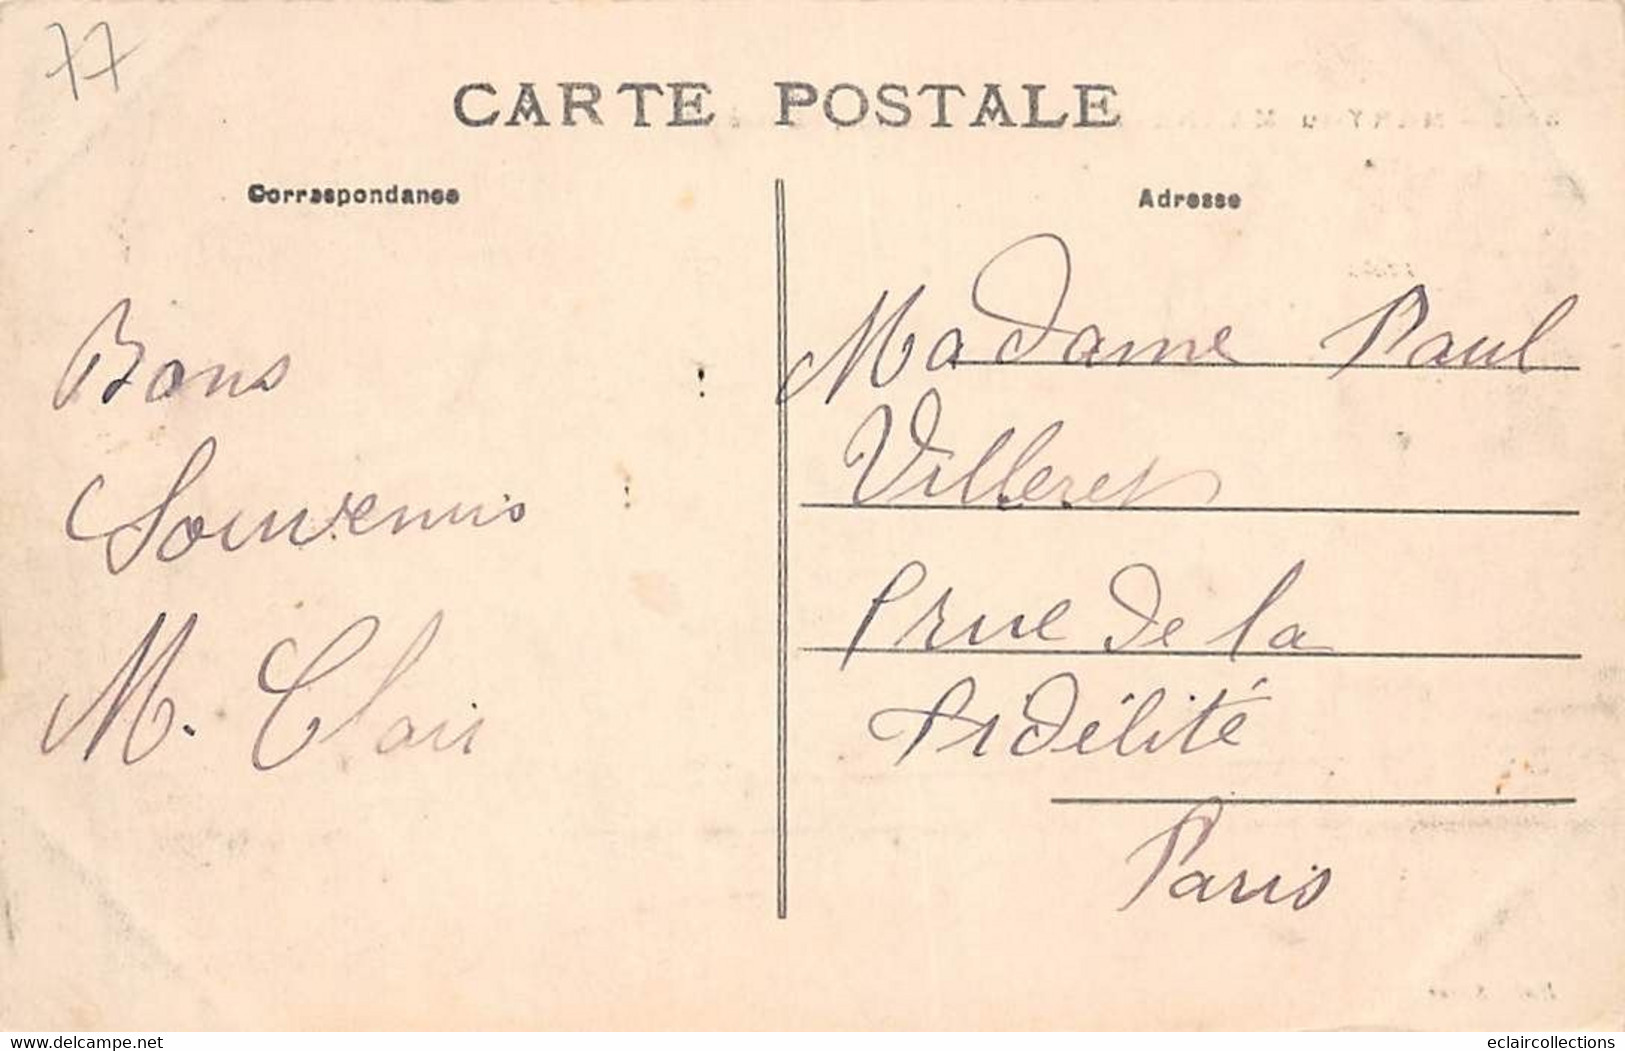 77
CARTE POSTALE
Correspondance
Adresse
Bons
Souvenirs
M. Clair
Madame Paul
Villerey
1 rue de la
Fidélité
Paris
www.delcampe.net
eclaircollections